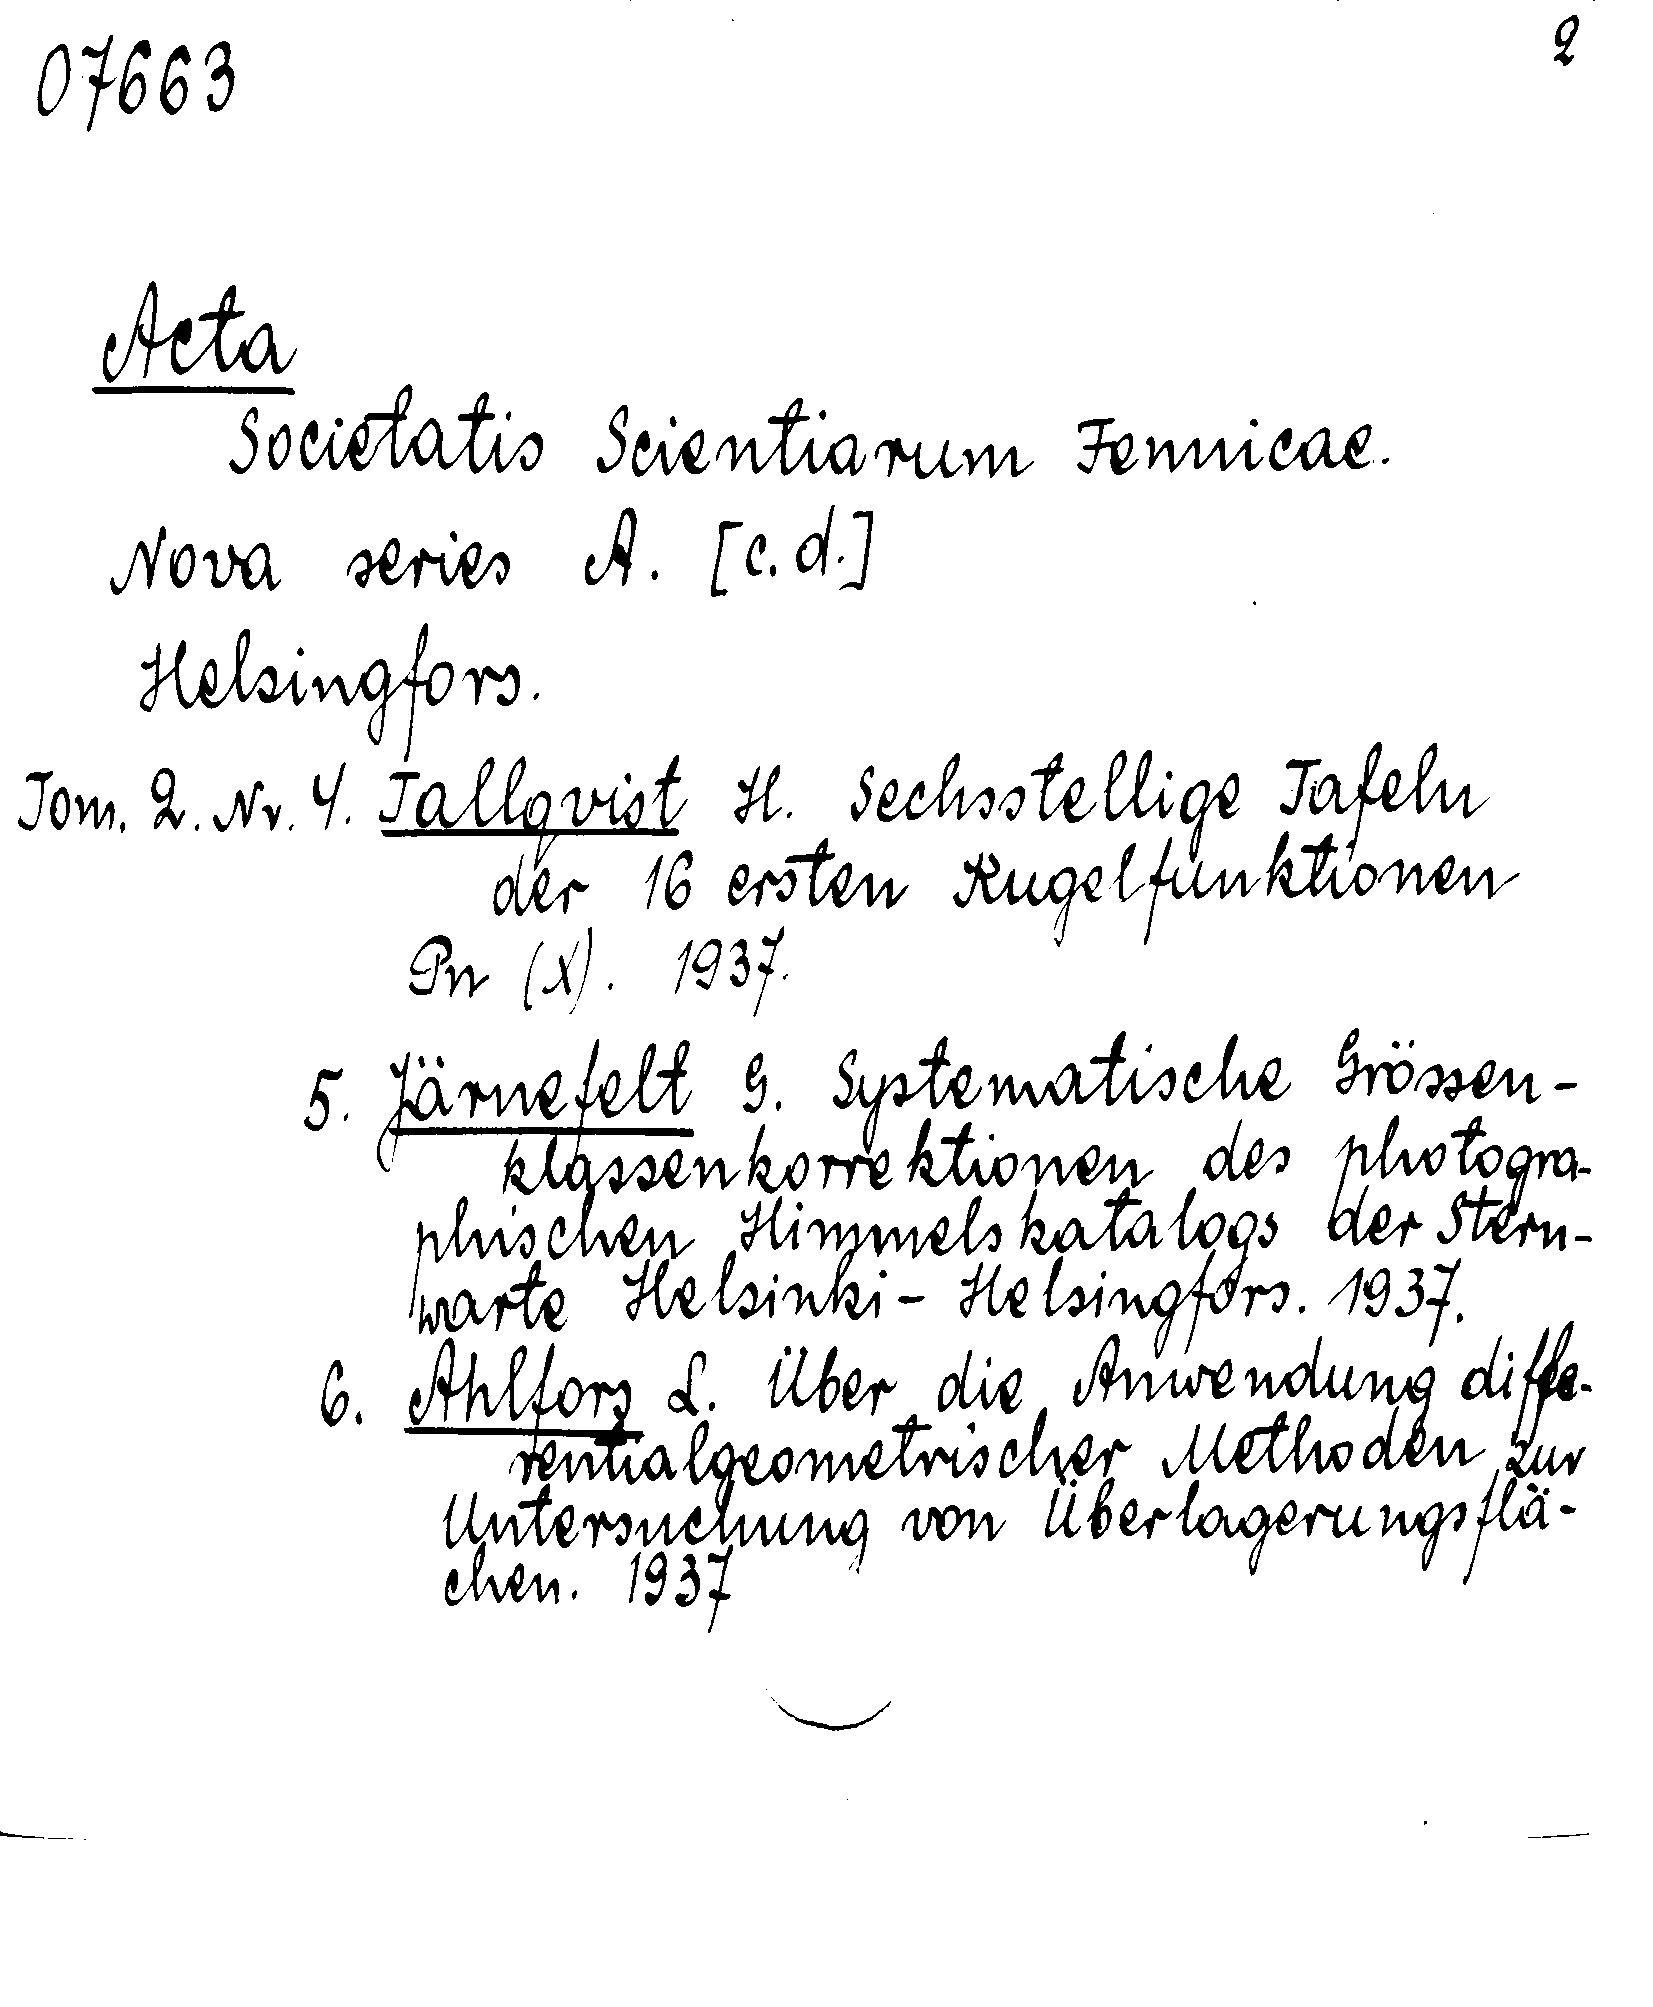 07663
2
Acta
Societatis Scientiarum Fennicae.
Nova series A. [c.d.]
Helsingfors.
Tom. 2. Nr. 4. Tallqvist H. Sechsstellige Tafeln
der 16 ersten Kugelfunktionen
Pn (X). 1937.
5. Järnefelt G. Systematische Grössen-
klassenkorrektionen des photogra-
phischen Himmelskatalogs der Stern-
warte Helsinki - Helsingfors. 1937.
6. Ahlfors L. Über die Anwendung diffe-
rentialgeometrischer Methoden zur
Untersuchung von Überlagerungsflä-
chen. 1937